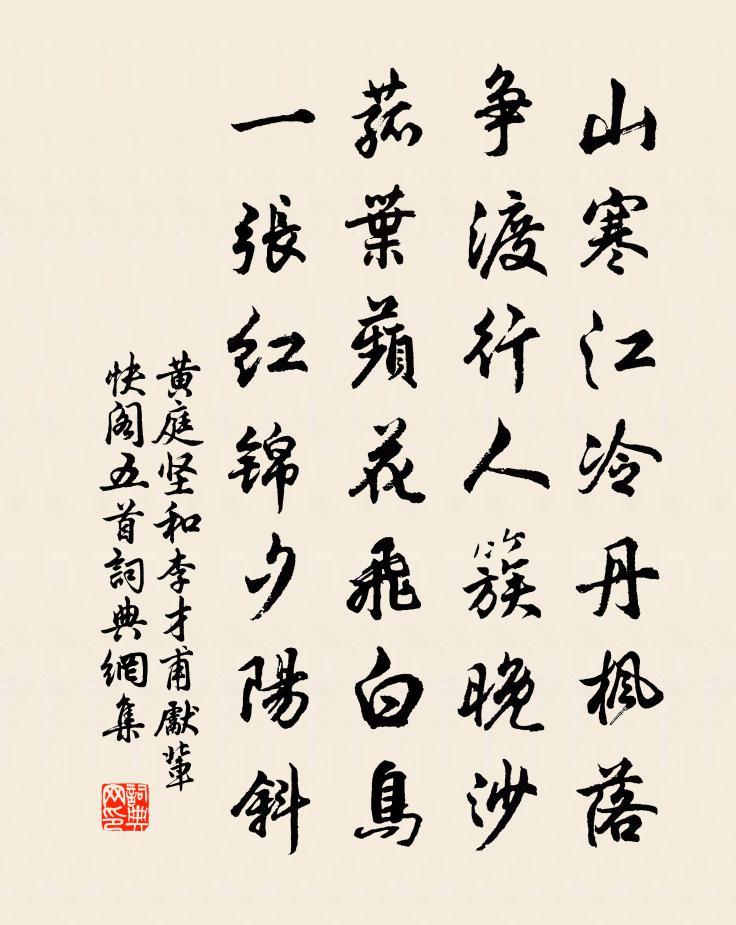 山寒江冷丹楓落
争渡行人簇晚沙
菰葉蘋花飛白鳥
一張红锦夕陽斜
黄庭坚和李才甫獻輩
快阁五首詞典網集
詞典
网印